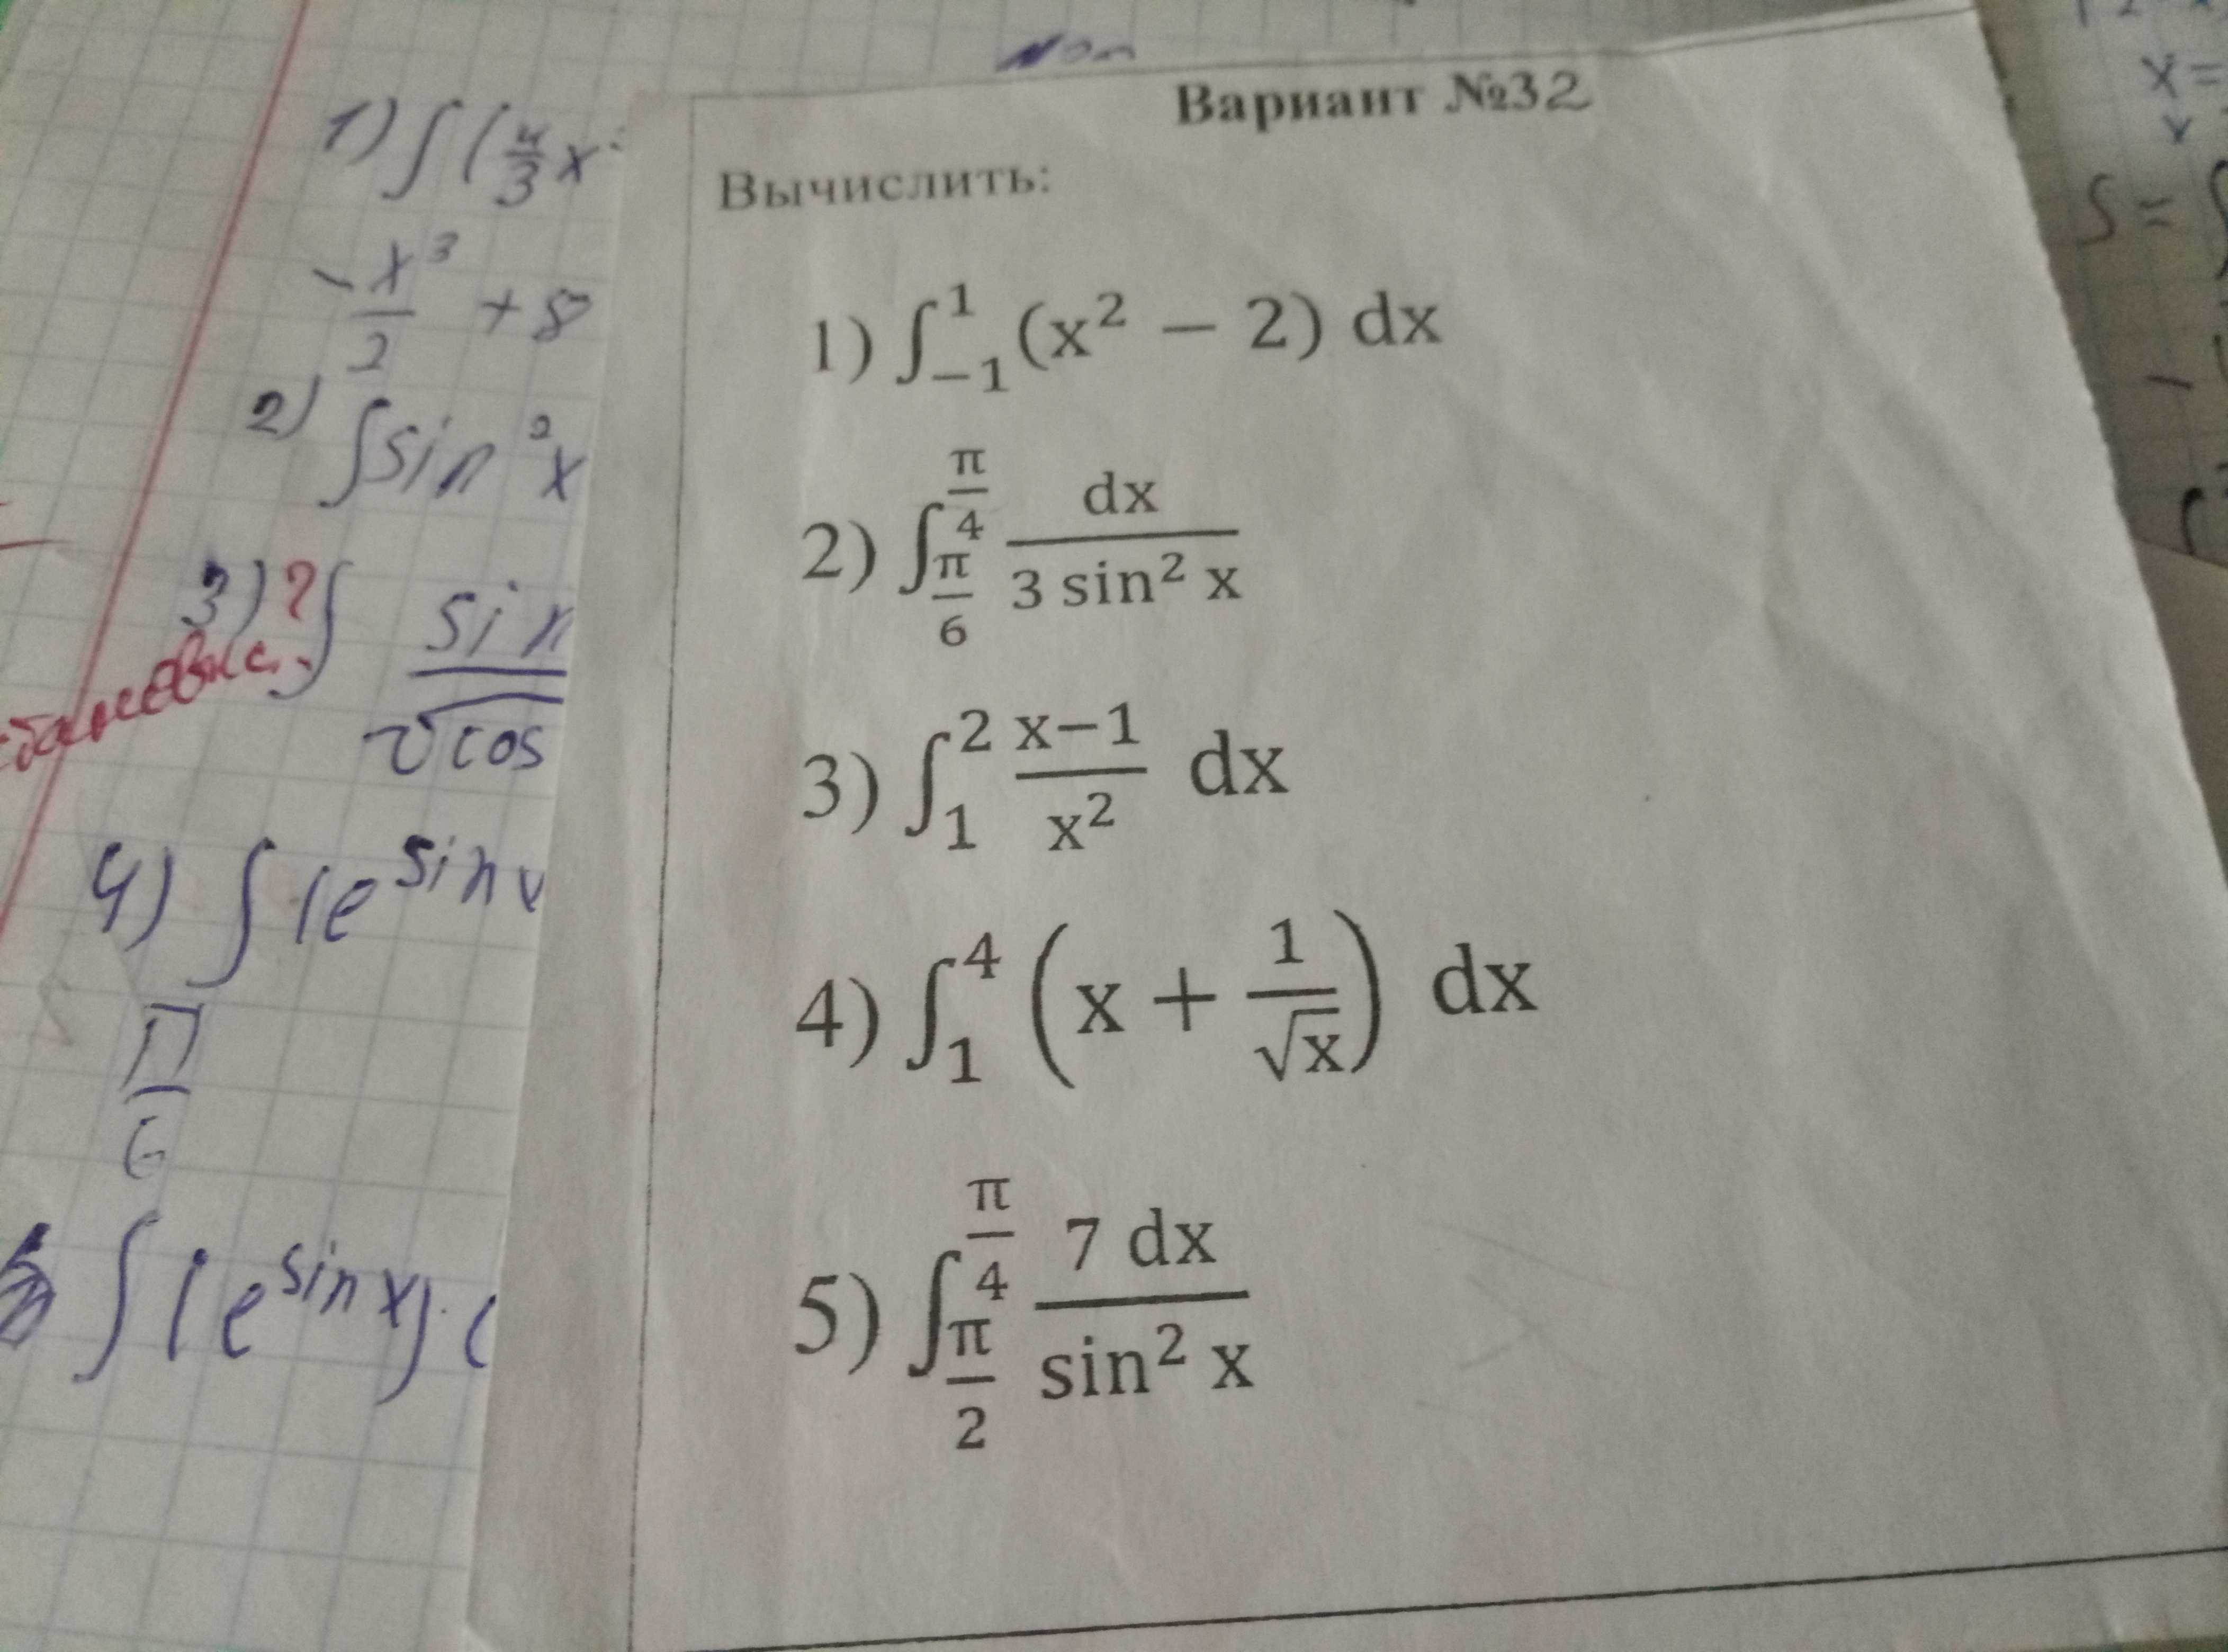 Вариант №32
Вычислить:
1) ∫₋₁¹ (x² − 2) dx
2) ∫_{π/6}^{π/4} dx / (3 sin² x)
3) ∫₁² (x−1)/x² dx
4) ∫₁⁴ (x + 1/√x) dx
5) ∫_{π/2}^{π/4} 7 dx / sin² x
1) ∫(4/3 x
− x³/2 + 8
2) ∫sin²x
3) ? ∫ sin
√cos
4) ∫(e^{sin x
π/6
∫(e^{sin x}) · (
x =
S = ∫